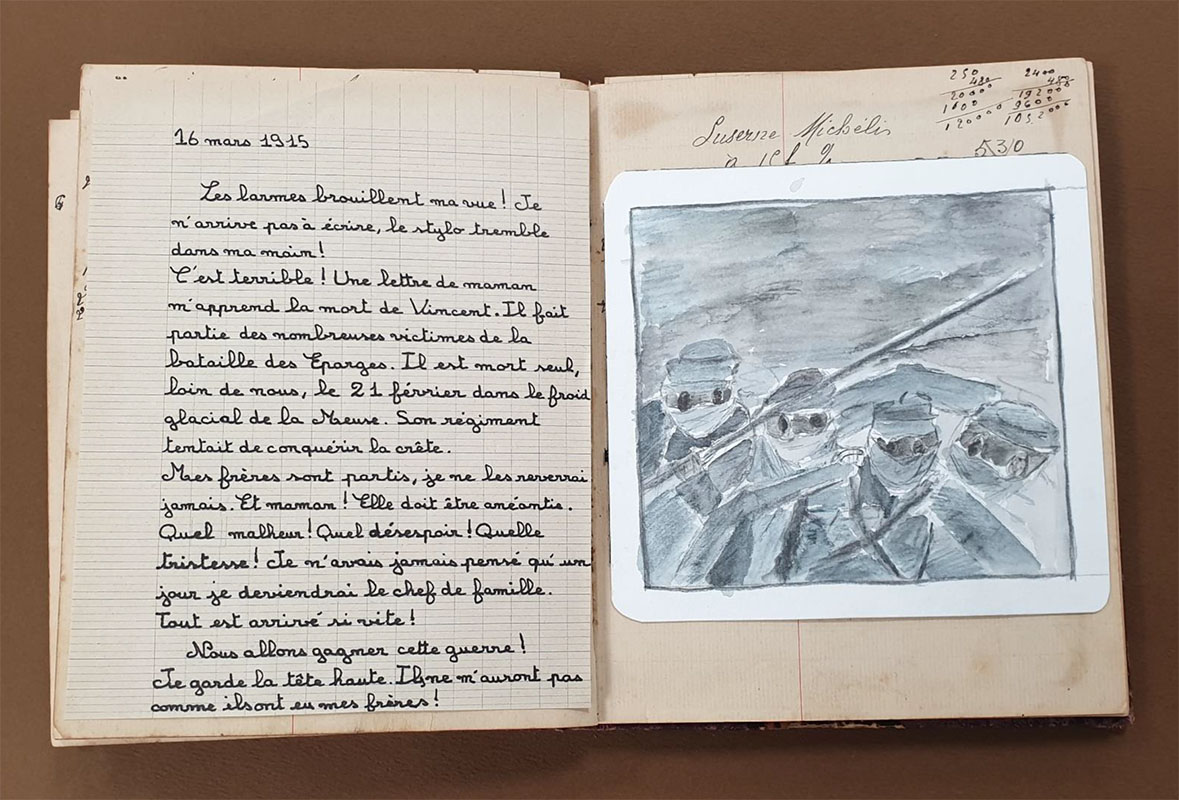 16 mars 1915
Les larmes brouillent ma vue ! Je
n'arrive pas à écrire, le stylo tremble
dans ma main !
C'est terrible ! Une lettre de maman
m'apprend la mort de Vincent. Il fait
partie des nombreuses victimes de la
bataille des Eparges. Il est mort seul,
loin de nous, le 21 février dans le froid
glacial de la Meuse. Son régiment
tentait de conquérir la crête.
Mes frères sont partis, je ne les reverrai
jamais. Et maman ! Elle doit être anéantie.
Quel malheur ! Quel désespoir ! Quelle
tristesse ! Je n'avais jamais pensé qu'un
jour je deviendrai le chef de famille.
Tout est arrivé si vite !
Nous allons gagner cette guerre !
Je garde la tête haute. Ils ne m'auront pas
comme ils ont eu mes frères !
250 2400
480
20000 19200
1000 9600
120000 105200
Luserne Michélis
530